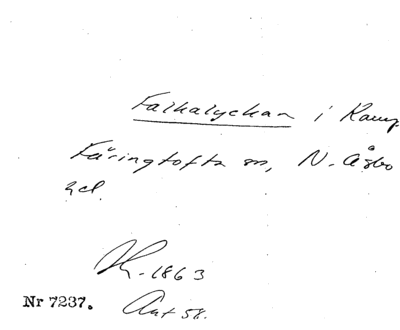 Falkalyckan i Ramp
Färingtofta sn, N. Åsbo
hd.
K. 1863
Nr 7237. Ant 58.